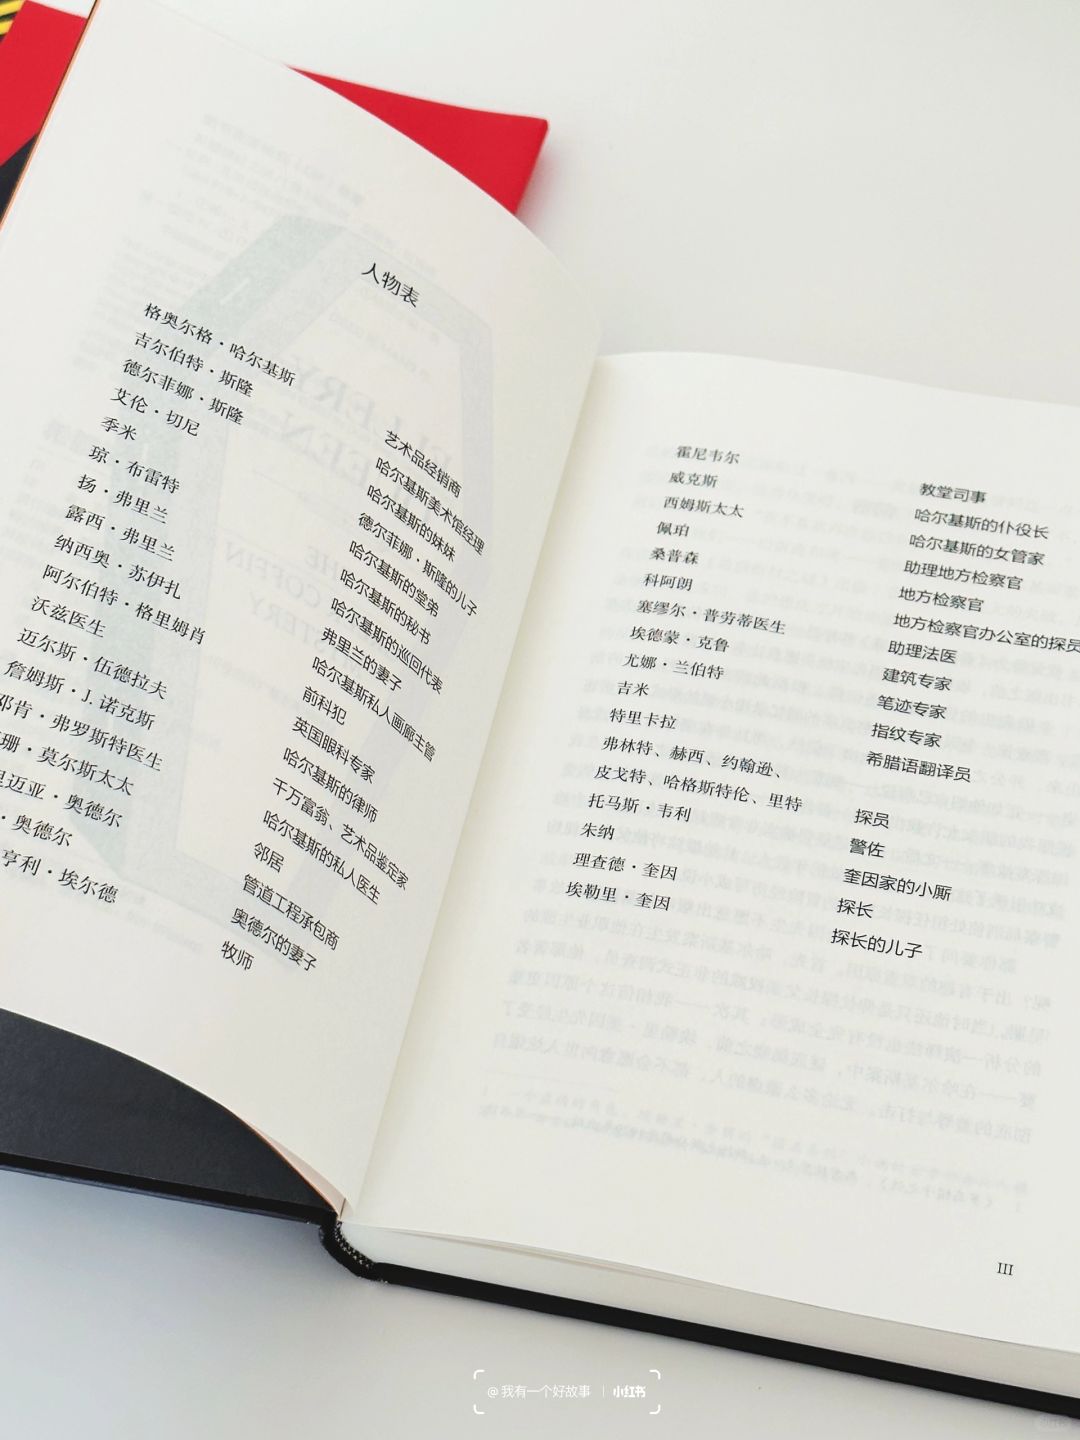 人物表
格奥尔格·哈尔基斯 艺术品经销商
吉尔伯特·斯隆 哈尔基斯美术馆经理
德尔菲娜·斯隆 哈尔基斯的妹妹
艾伦·切尼 德尔菲娜·斯隆的儿子
季米 哈尔基斯的堂弟
琼·布雷特 哈尔基斯的秘书
扬·弗里兰 哈尔基斯的巡回代表
露西·弗里兰 弗里兰的妻子
纳西奥·苏伊扎 哈尔基斯私人画廊主管
阿尔伯特·格里姆肖 前科犯
沃兹医生 英国眼科专家
迈尔斯·伍德拉夫 哈尔基斯的律师
詹姆斯·J. 诺克斯 千万富翁、艺术品鉴定家
邓肯·弗罗斯特医生 哈尔基斯的私人医生
珊·莫尔斯太太 邻居
里迈亚·奥德尔 管道工程承包商
·奥德尔 奥德尔的妻子
亨利·埃尔德 牧师
霍尼韦尔 教堂司事
威克斯 哈尔基斯的仆役长
西姆斯太太 哈尔基斯的女管家
佩珀 助理地方检察官
桑普森 地方检察官
科阿朗 地方检察官办公室的探员
塞缪尔·普劳蒂医生 助理法医
埃德蒙·克鲁 建筑专家
尤娜·兰伯特 笔迹专家
吉米 指纹专家
特里卡拉 希腊语翻译员
弗林特、赫西、约翰逊、
皮戈特、哈格斯特伦、里特 探员
托马斯·韦利 警佐
朱纳 奎因家的小厮
理查德·奎因 探长
埃勒里·奎因 探长的儿子
III
@我有一个好故事 | 小红书